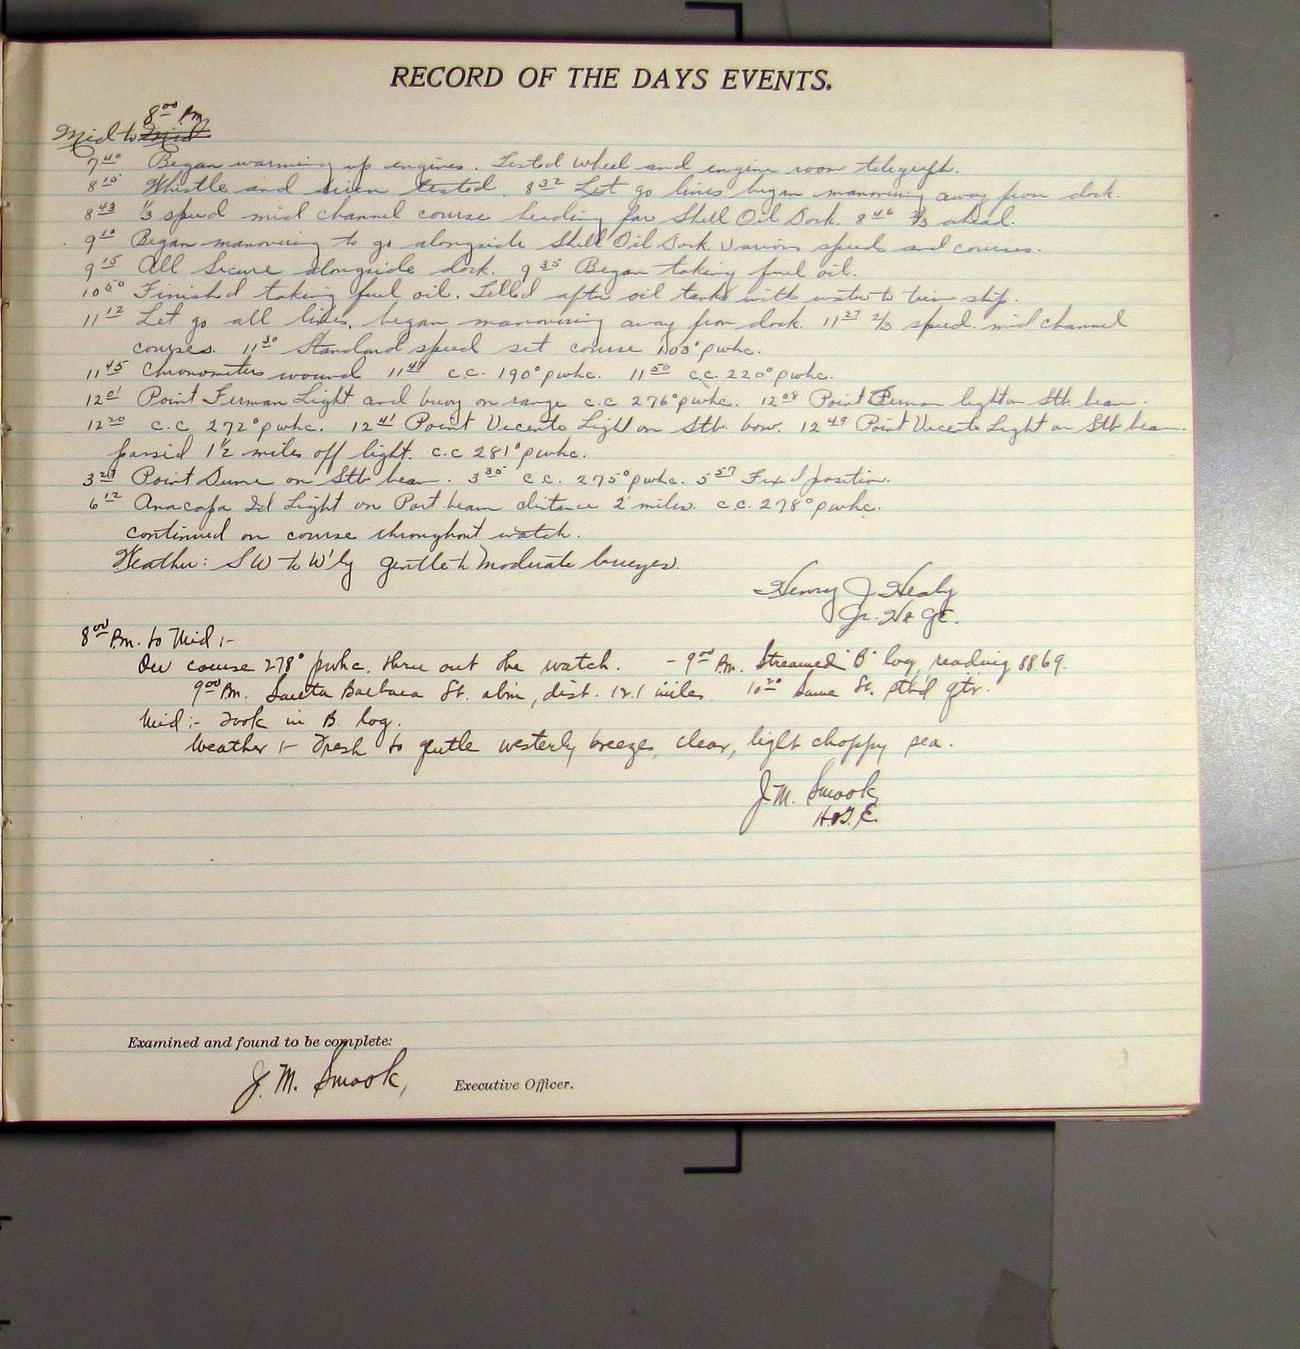 RECORD OF THE DAYS EVENTS.
8 00 Pm
Mid to Mid
7 40 Began warming up engines. Tested wheel and engine room telegraph.
8 15 Whistle and siren tested. 8 32 Let go lines began manovering away from dock.
8 43 1/3 speed mid channel course heading for Shell Oil Dock. 8 46 2/3 ahead.
9 10 Began manovering to go alongside Shell Oil Dock various speeds and courses.
9 15 All Secure alongside dock. 9 35 Began taking fuel oil.
10 50 Finished taking fuel oil. Filled after oil tanks with water to trim ship.
11 12 Let go all lines, began manovering away from dock. 11 27 2/3 speed. mid channel
courses. 11 30 Standard speed set course 103° pwhc.
11 45 Chronometers wound 11 49 c.c. 190° pwhc. 11 50 c.c. 220° pwhc.
12 01 Point Firman Light and buoy on range c.c 276° pwhc. 12 08 Point Firman light on Stb. beam.
12 20 c.c 272° pwhc. 12 41 Point Vicente Light on Stb. bow. 12 49 Point Vicente Light on Stb beam
passed 1 1/2 miles off light. c.c 281° pwhc.
3 29 Point Dume on Stb beam. 3 35 c.c. 275° pwhc. 5 57 Fixed position.
6 12 Anacapa Id Light on Port beam distance 2 miles. c.c. 278° pwhc.
continued on course throughout watch.
Weather: SW to W'ly gentle to moderate breezes.
Henry J. Healy
Jr. H & GE.
8 00 Pm. to Mid :-
On course 278° pwhc. thru out the watch. - 9 00 Pm. Streamed "B" log, reading 88.69.
9 00 Pm. Santa Barbara Lt. abm, dist. 12.1 miles. 10 20 Same Lt. stbd qtr.
Mid :- Took in B. log.
Weather :- Fresh to gentle westerly breezes, clear, light choppy sea.
J. M. Smook
H.&G.E.
Examined and found to be complete:
J. M. Smook, Executive Officer.